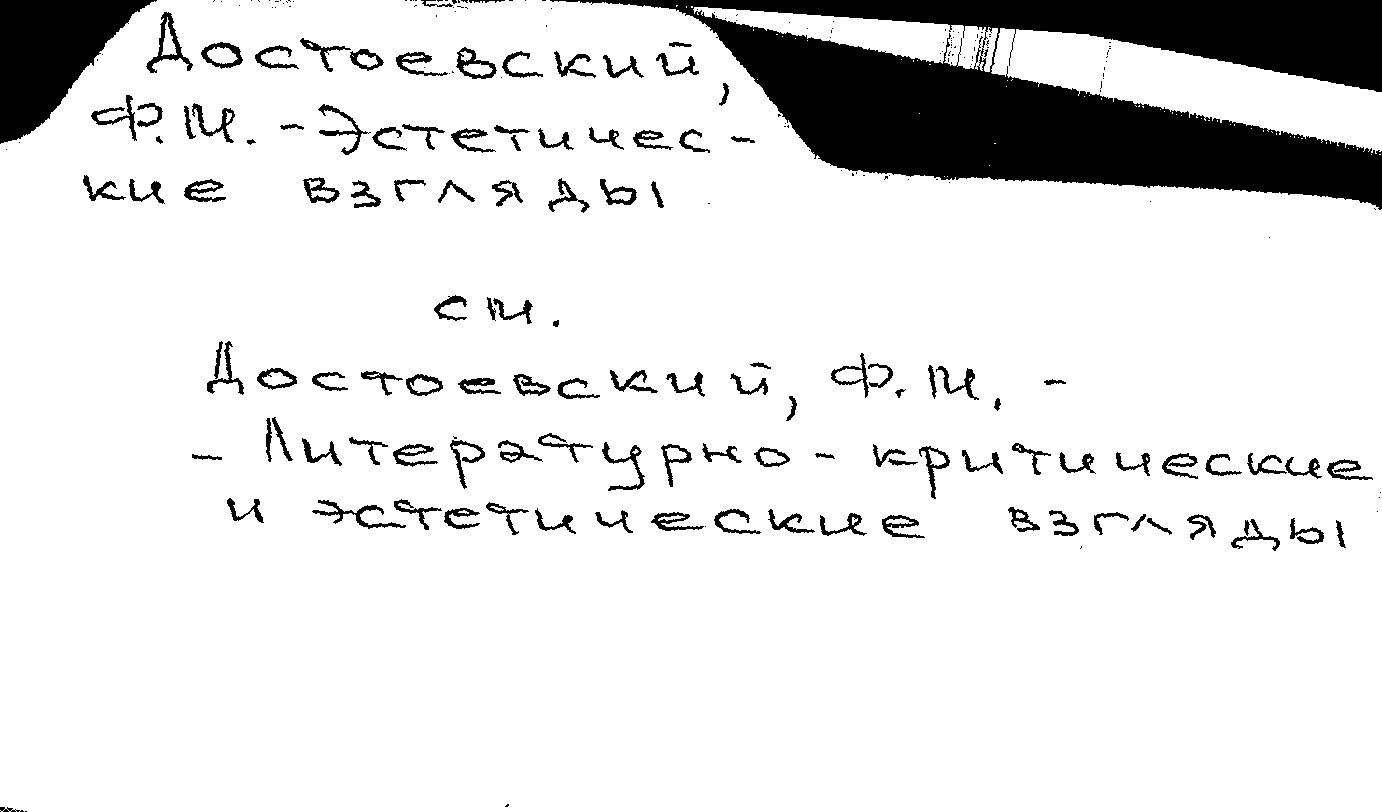 Достоевский,
Ф.М. - Эстетичес-
кие взгляды
см.
Достоевский, Ф.М. -
- Литературно - критические
и эстетические взгляды